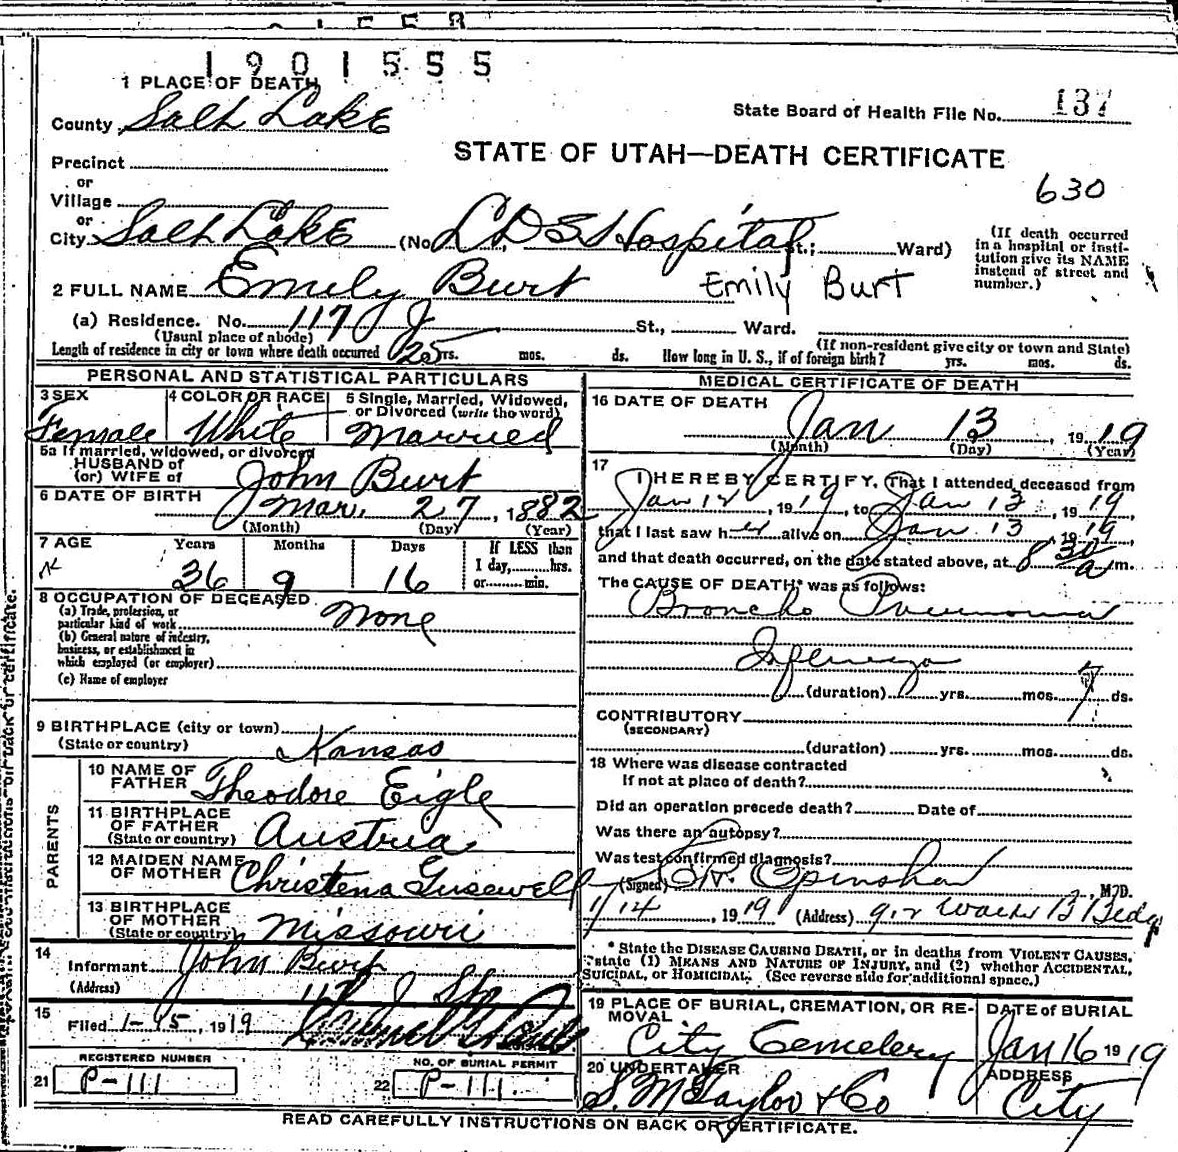 1901555
1 PLACE OF DEATH
County Salt Lake
State Board of Health File No. 137
STATE OF UTAH—DEATH CERTIFICATE
Precinct
or
Village
or
630
City Salt Lake (No L.D.S Hospital St.; Ward)
(If death occurred in a hospital or institution give its NAME instead of street and number.)
2 FULL NAME Emily Burt Emily Burt
(a) Residence. No. 117 J St., Ward.
(Usual place of abode) (If non-resident give city or town and State)
Length of residence in city or town where death occurred 25 yrs. mos. ds. How long in U. S., if of foreign birth? yrs. mos. ds.
PERSONAL AND STATISTICAL PARTICULARS
3 SEX Female
4 COLOR OR RACE White
5 Single, Married, Widowed, or Divorced (write the word) Married
5a If married, widowed, or divorced
HUSBAND of
(or) WIFE of John Burt
6 DATE OF BIRTH Mar. 27, 1882
(Month) (Day) (Year)
7 AGE Years Months Days If LESS than
1 day, hrs.
36 9 16 or min.
8 OCCUPATION OF DECEASED
(a) Trade, profession, or
particular kind of work None
(b) General nature of industry,
business, or establishment in
which employed (or employer)
(c) Name of employer
9 BIRTHPLACE (city or town)
(State or country) Kansas
PARENTS
10 NAME OF
FATHER Theodore Eigle
11 BIRTHPLACE
OF FATHER
(State or country) Austria
12 MAIDEN NAME
OF MOTHER Christena Gusewell
13 BIRTHPLACE
OF MOTHER
(State or country) Missouri
14
Informant John Burt
(Address) 117 J St
15
Filed 1-15, 1919
REGISTERED NUMBER
21 P-111
NO. OF BURIAL PERMIT
22 P-111
MEDICAL CERTIFICATE OF DEATH
16 DATE OF DEATH
Jan 13, 1919
(Month) (Day) (Year)
17
I HEREBY CERTIFY, That I attended deceased from
Jan 12, 1919, to Jan 13, 1919,
that I last saw her alive on Jan 13, 1919,
and that death occurred, on the date stated above, at 8 30 a m.
The CAUSE OF DEATH* was as follows:
Broncho Pneumonia
Influenza
(duration) yrs. mos. 7 ds.
CONTRIBUTORY
(SECONDARY)
(duration) yrs. mos. ds.
18 Where was disease contracted
If not at place of death?
Did an operation precede death? Date of
Was there an autopsy?
Was test confirmed diagnosis?
(Signed) Openshaw, M.D.
1/14, 1919 (Address) 912 Walker B Bldg
* State the DISEASE CAUSING DEATH, or in deaths from VIOLENT CAUSES,
state (1) MEANS AND NATURE OF INJURY, and (2) whether ACCIDENTAL,
SUICIDAL, or HOMICIDAL. (See reverse side for additional space.)
19 PLACE OF BURIAL, CREMATION, OR RE-
MOVAL
City Cemetery
DATE of BURIAL
Jan 16 1919
20 UNDERTAKER
S. M Taylor & Co
ADDRESS
City
READ CAREFULLY INSTRUCTIONS ON BACK OF CERTIFICATE.